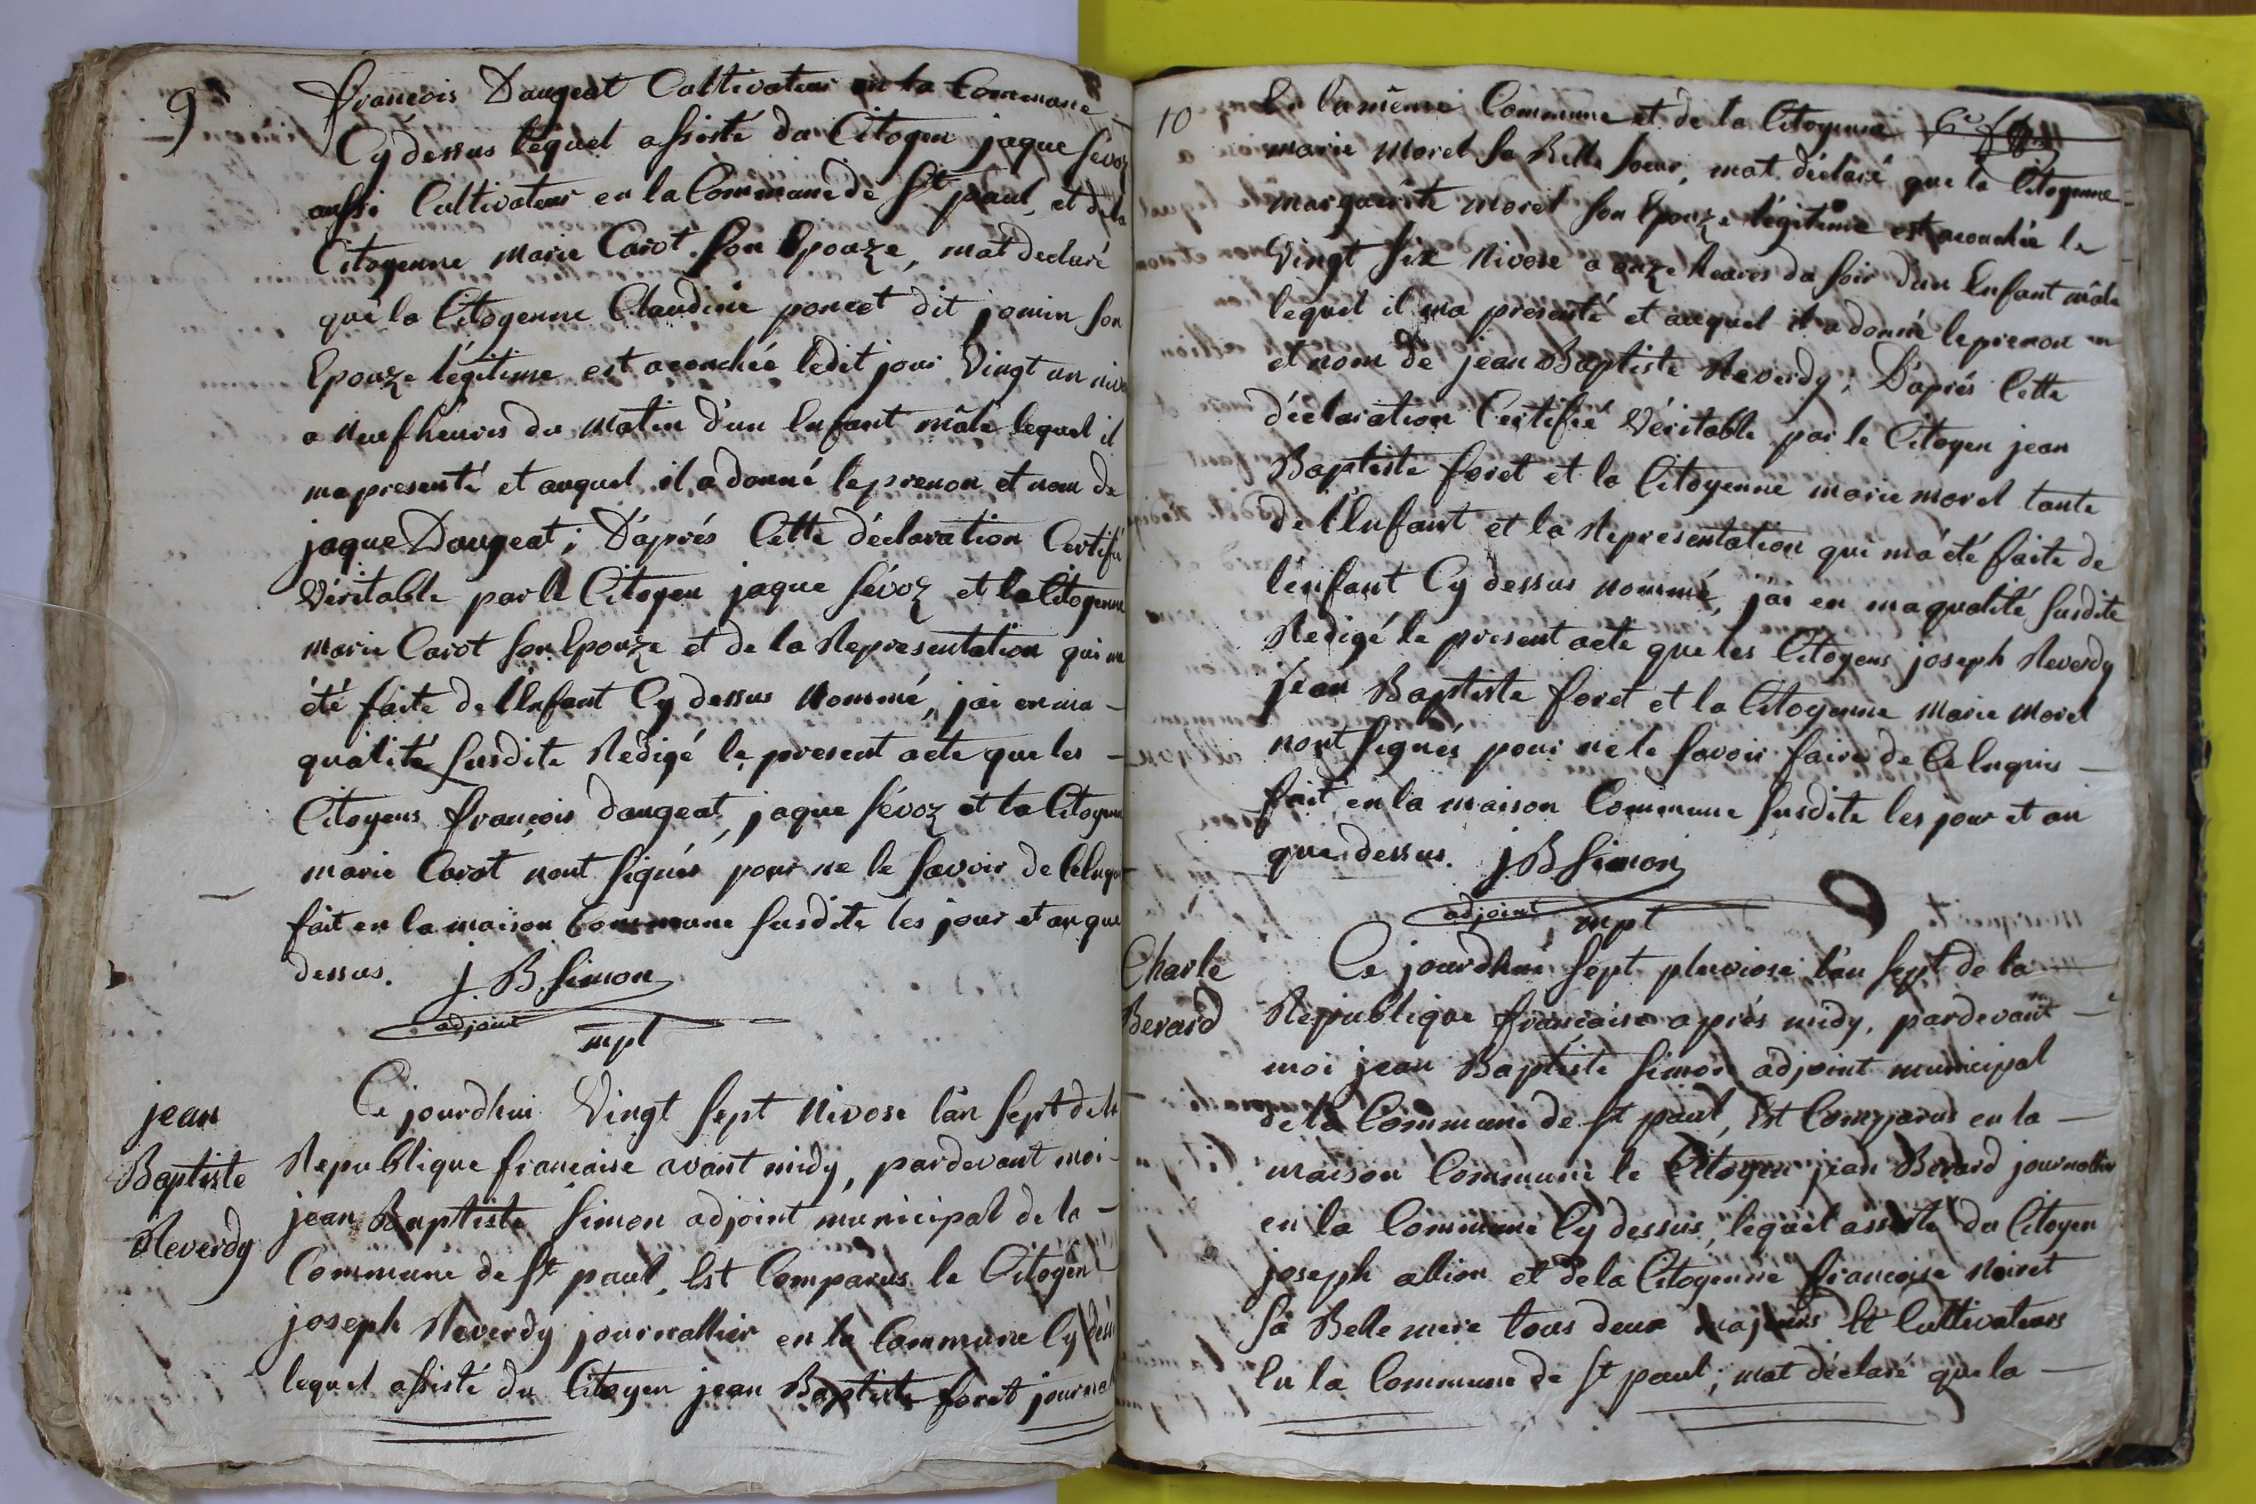 9
françois Daugeat Cultivateur en la Commune
Cy dessus lequel assisté du Citoyen jaque Sévoz
aussi Cultivateur en la Commune de St paul, et de la
Citoyenne marie Carot son Epouze, mat declaré
que la Citoyenne Claudine poncet dit jomin son
Epouze légitime est acouchée ledit jour Vingt un nivo
a Neuf heures du matin d'un Enfant mâle lequel il
ma presenté et auquel il a donné le prenon et nom de
jaque Daugeat; D'aprés Cette déclaration Certifié
Véritable par le Citoyen jaque Sévoz et la Citoyenne
marie Carot son Epouze et de la Representation qui ma
été faite de l'Enfant Cy dessus Nommé, jai en ma
qualité susdite Redigé le present acte que les
Citoyens françois daugeat, jaque Sévoz et la Citoyenne
marie Carot nont signés pour ne le savoir de Ce Enquis
fait en la maison Commune susdite les jour et an que
dessus. J. B. Simon
adjoint mpl
jean
Baptiste
Reverdy
Ce jourdhui Vingt sept Nivose l'an sept de la
Republique francaise avant midy, pardevant moi
jean Baptiste Simon adjoint municipal de la
Commune de St paul, Est Comparus le Citoyen
joseph Reverdy journallier en la Commune Cy dessus
lequel assisté du Citoyen jean Baptiste foret journal
10
En la même Commune et de la Citoyenne
marie morel sa Belle soeur, mat déclaré que la Citoyenne
marguerite morel son Epouze légitime est acouchée le
Vingt six Nivose a onze heures du soir d'un Enfant mâle
lequel il ma presenté et auquel il a donné le prenon
et nom de jean Baptiste Reverdy; D'aprés Cette
déclaration Certifié Véritable par le Citoyen jean
Baptiste foret et la Citoyenne marie morel tante
de l'Enfant et la Representation qui m'a été faite de
l'enfant Cy dessus nommé, j'ai en ma qualité susdite
Redigé le present acte que les Citoyens joseph Reverdy
jean Baptiste foret et la Citoyenne marie morel
nont signés pour ne le savoir faire de Ce Enquis
fait en la maison Commune susdite les jour et an
que dessus. J B Simon
adjoint mpl
Charle
Berard
Ce jourdhui sept pluviose l'an sept de la
Republique francaise aprés midy, pardevant
moi jean Baptiste Simon adjoint municipal
de la Commune de St paul, Est Comparus en la
maison Commune le Citoyen jean Berard journallier
en la Commune Cy dessus, lequel assisté du Citoyen
joseph allion et de la Citoyenne francoise Noiret
sa Belle mere tous deux majeurs et Cultivateurs
En la Commune de St paul; mat déclaré que la